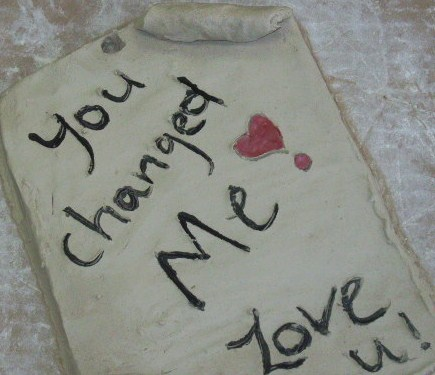 You
changed
Me
Love
u!